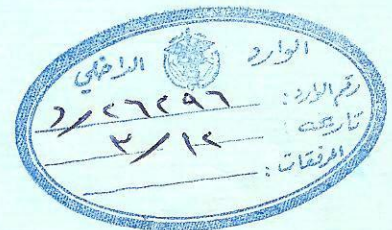 الوارد الداخلي
رقم الوارد: ٢٦٢٩٦/د
تاريخه: ١٢/٣
المرفقات: